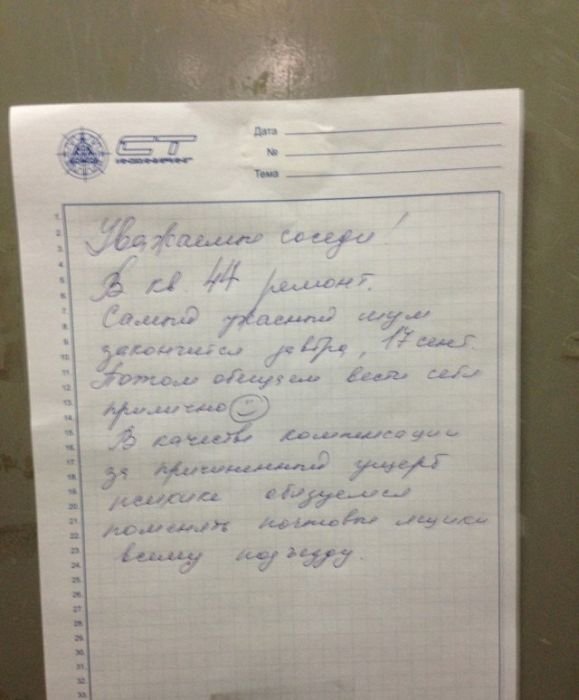 СТ
ИНЖИНИРИНГ
Дата
№
Тема
Уважаемые соседи!
В кв. 44 ремонт.
Самый ужасный шум
закончится завтра, 17 сент.
Потом обещаем вести себя
прилично
В качестве компенсации
за причиненный ущерб
психике обязуемся
поменять почтовые ящики
всему подъезду.
1.
2.
3.
4.
5.
6.
7.
8.
9.
10.
11.
12.
13.
14.
15.
16.
17.
18.
19.
20.
21.
22.
23.
24.
25.
26.
27.
28.
29.
30.
31.
32.
33.